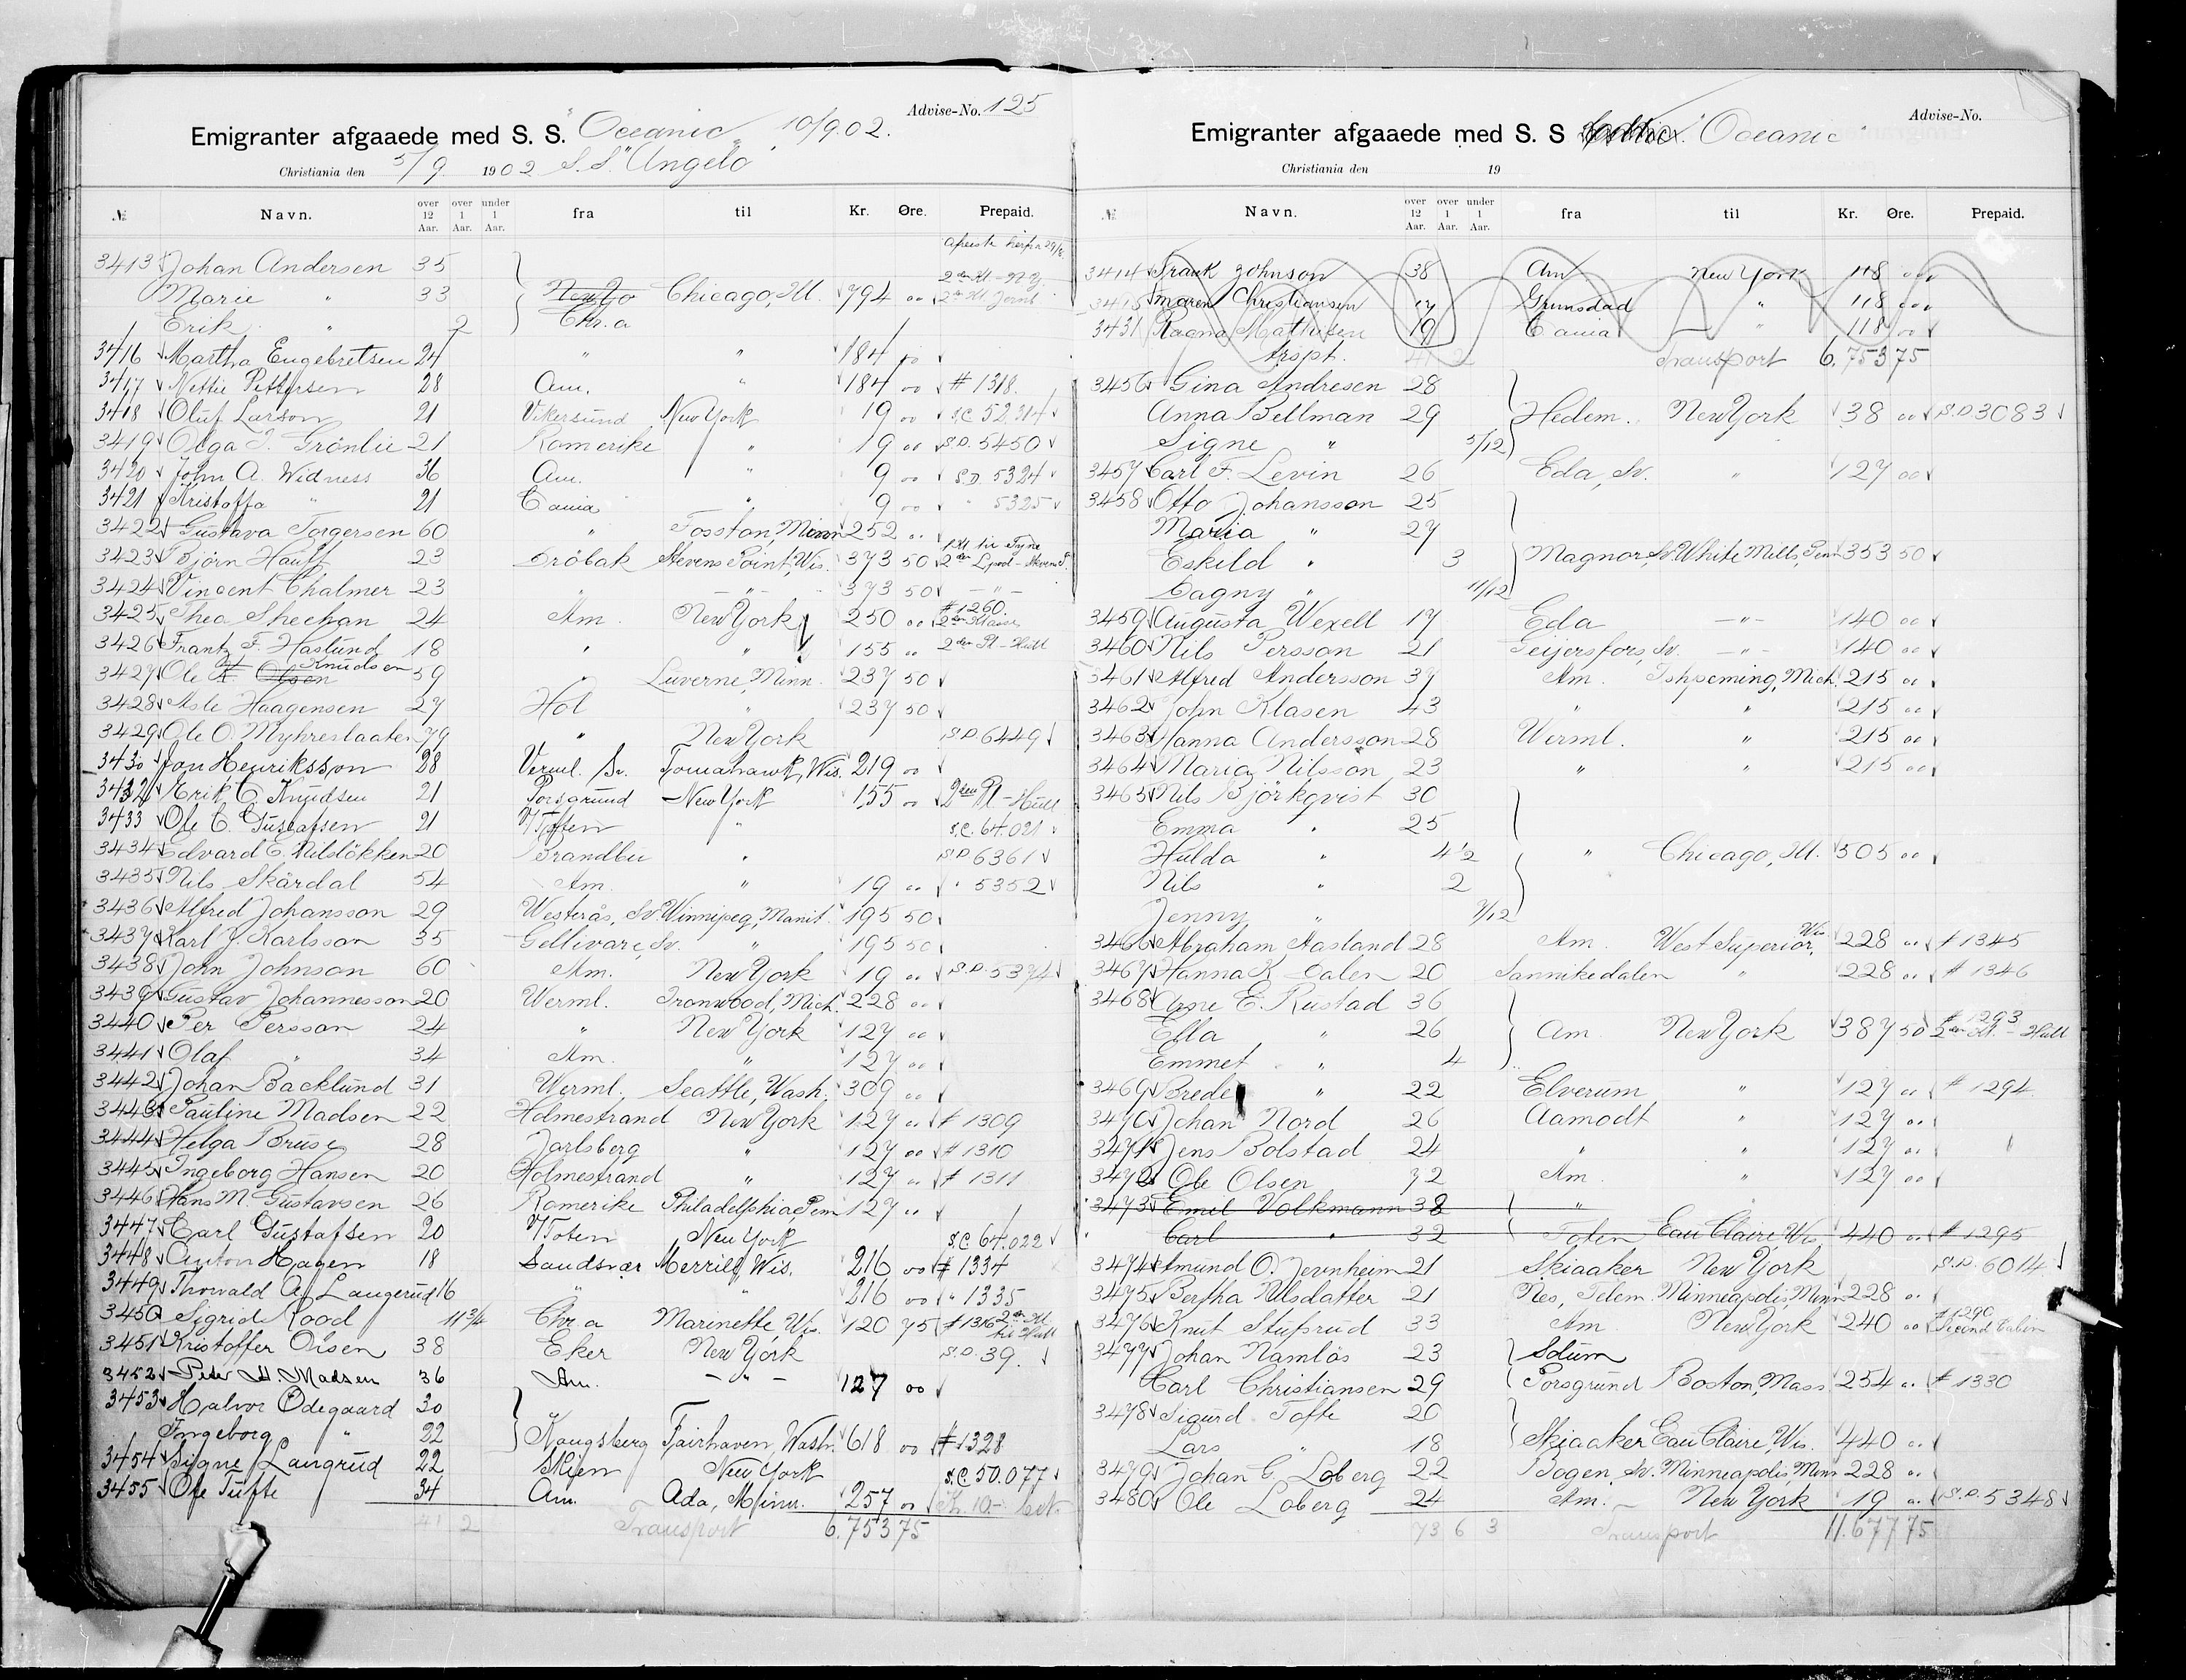 Advise-No. 125
Emigranter afgaaede med S. S. "Oceanic" 10/9.02.
Christiania den 5/9 1902 S.S. "Angelo"
№ Navn. over 12 Aar. over 1 Aar. under 1 Aar. fra til Kr. Øre. Prepaid.
3413 Johan Andersen 35
Marie " 33 New Yo Chicago, Ill. 794 00
Erik " 2 Chr.a
3416 Martha Engebretsen 24 " " 184 00
3417 Nettie Pettersen 28 Am. " 184 00 # 1318.
3418 Oluf Larson 21 Vikersund New York 19 00 S.C. 52,314
3419 Olga J. Grönlie 21 Romerike " 19 00 S.D. 5450
3420 John A. Widness 36 Am. " 9 00 S.D. 5324
3421 Kristoffa " 21 Cania " 9 00 " 5325
3422 Gustava Torgersen 60 " Fosston, Minn 252 00
3423 Björn Hauff 23 Dröbak Stevens Point, Wis. 373 50
3424 Vincent Chalmer 23 " - " - 373 50 - " -
3425 Thea Sheehan 24 Am. New York 250 00 # 1260. 2den Klasse
3426 Frantz F. Haslund 18 " " 155 00 2den Pl - Hull
3427 Ole K. Olsen Knudsen 59 " Luverne, Minn. 237 50
3428 Asle Haagensen 27 Hol " 237 50
3429 Ole O. Myhreslaaten 79 " New York S.D. 6449
3430 Jon Henriksson 28 Verml. Sv. Tomahawk, Wis. 219 00
3432 Erik C Knudsen 21 Porsgrund New York 155 00 2den Pl - Hull
3433 Ole C. Gustafsen 21 V/Toten " S.C. 64.021
3434 Edvard E. Nilslökken 20 Brandbu " S.D. 6361
3435 Nils Skärdal 54 Am. " 19 00 " 5352
3436 Alfred Johansson 29 Westerås, Sv. Winnipeg, Manit. 195 50
3437 Karl J. Karlsson 35 Gellivare, Sv. " 195 50
3438 John Johnson 60 Am. New York 19 00 S.D. 5374
3439 Gustav Johannesson 20 Werml. Ironwood, Mich. 228 00
3440 Per Persson 24 " New York 127 00
3441 Olaf " 34 Am. " 127 00
3442 Johan Backlund 31 Werml. Seattle, Wash. 309 00
3443 Pauline Madsen 22 Holmestrand New York 127 00 # 1309
3444 Helga Bruse 28 Jarlsberg " 127 00 # 1310
3445 Ingeborg Hansen 20 Holmestrand " 127 00 # 1311
3446 Hans M. Gustavsen 26 Romerike Philadelphia, Penn 127 00
3447 Carl Gustafsen 20 V/Toten New York S.C. 64.022
3448 Anton Hagen 18 Sandsvær Merrill, Wis. 216 00 # 1334
3449 Thorvald A. Laugerud 16 " " 216 00 " 1335
3450 Sigrid Rood 11 3/4 Chr.a Marinette, Wis. 120 75 # 1316 2den Kl. til Hull
3451 Kristoffer Olsen 38 Eker New York S.D. 39.
3452 Peter A. Madsen 36 Am. - " - 127 00
3453 Halvor Ödegaard 30
Ingeborg " 22 Kongsberg Fairhaven, Wash. 618 00 # 1328
3454 Signe Langrud 22 Skien New York S.C. 50.077
3455 Ole Tufte 34 Am. Ada, Minn. 257 00 Kr. 10.-
41 2 Transport 6.753 75
Advise-No.
Emigranter afgaaede med S. S "Oceanic"
Christiania den 19
№ Navn. over 12 Aar. over 1 Aar. under 1 Aar. fra til Kr. Øre. Prepaid.
3414 Frank Johnson 38 Am New York 118 00
3415 Maren Christiansen 17 Grimstad " 118 00
3431 Ragna Mathisen 19 Cania " 118 00
trspt. 41 2 Transport 6.753 75
3456 Gina Andresen 28
Anna Bellman 29 Hedem. New York 38 00 S.D. 3083
Signe " 5/12
3457 Carl F. Levin 26 Eda, Sv. " 127 00
3458 Otto Johansson 25
Maria " 27
Eskild " 3 Magnor, Sv. White Mills, Penn 353 50
Dagny " 11/12
3459 Augusta Wexell 17 Eda - " - 140 00
3460 Nils Persson 21 Geijersfors, Sv. - " - 140 00
3461 Alfred Andersson 39 Am. Ishpeming, Mich. 215 00
3462 John Klasen 43 " " 215 00
3463 Hanna Andersson 28 Werml. " 215 00
3464 Maria Nilsson 23 " " 215 00
3465 Nils Björkqvist 30
Emma " 25
Hulda " 4 1/2 " Chicago, Ill. 505 00
Nils " 2
Jenny " 7/12
3466 Abraham Aasland 28 Am. West Superior, Wis. 228 00 # 1345
3467 Hanna K. Dalen 20 Sannikedalen " 228 00 # 1346
3468 Arne E. Rustad 36
Ella " 26 Am. New York 387 50 # 1293 2den Kl. - Hull
Emmet " 4
3469 Brede " 22 Elverum " 127 00 # 1294.
3470 Johan Nord 26 Aamodt " 127 00
3471 Jens Bolstad 24 " " 127 00
3472 Ole Olsen 72 Am. " 127 00
3473 Emil Volkmann 38 " "
Carl " 32 Toten Eau Claire Wis. 440 00 # 1295
3474 Amund O. Jevnheim 21 Skiaaker New York S.D. 6014
3475 Bertha Nilsdatter 21 Nes, Telem. Minneapolis, Minn 228 00
3476 Knut Stuprud 33 Am New York 240 00 # 1290 Second Cabin
3477 Johan Namlös 23 Solum
Carl Christiansen 29 Porsgrund Boston, Mass. 254 00 # 1330
3478 Sigurd Tofte 20
Lars " 18 Skiaaker Eau Claire, Wis. 440 00
3479 Johan G. Loberg 22 Bogen, Sv. Minneapolis, Minn 228 00
3480 Ole Loberg 24 Am. New York 19 00 S.D. 5348
73 6 3 Transport 11.677 75